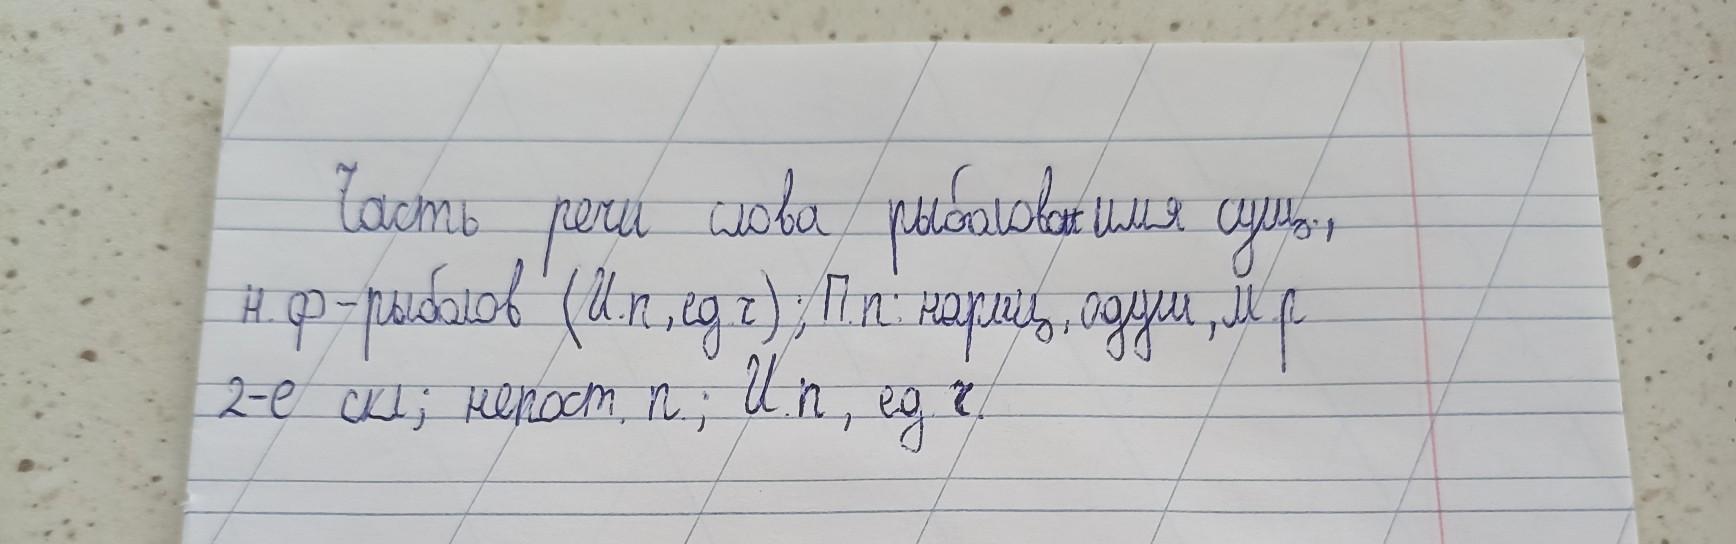 Часть речи слова рыболов имя сущ.,
н. ф-рыболов (И.п, ед.ч); П.п: нариц, одуш, м.р
2-е скл; непост. п.; И.п, ед.ч.